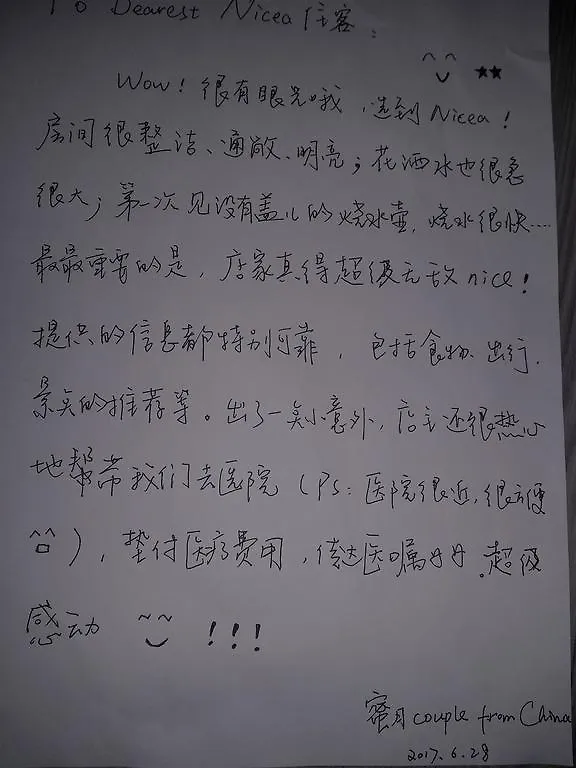 To Dearest Nicea 住客：
^^ ★★
Wow！很有眼光哦，选到Nicea！
房间很整洁、通敞、明亮；花洒水也很急
很大；第一次见没有盖儿的烧水壶，烧水很快……
最最重要的是，店家真得超级无敌nice！
提供的信息都特别可靠，包括食物、出行、
景点的推荐等。出了一点小意外，店主还很热心
地帮带我们去医院（PS：医院很近，很方便
^^），垫付医疗费用，传达医嘱。超级
感动 ~~ !!!
蜜月couple from China
2017.6.28